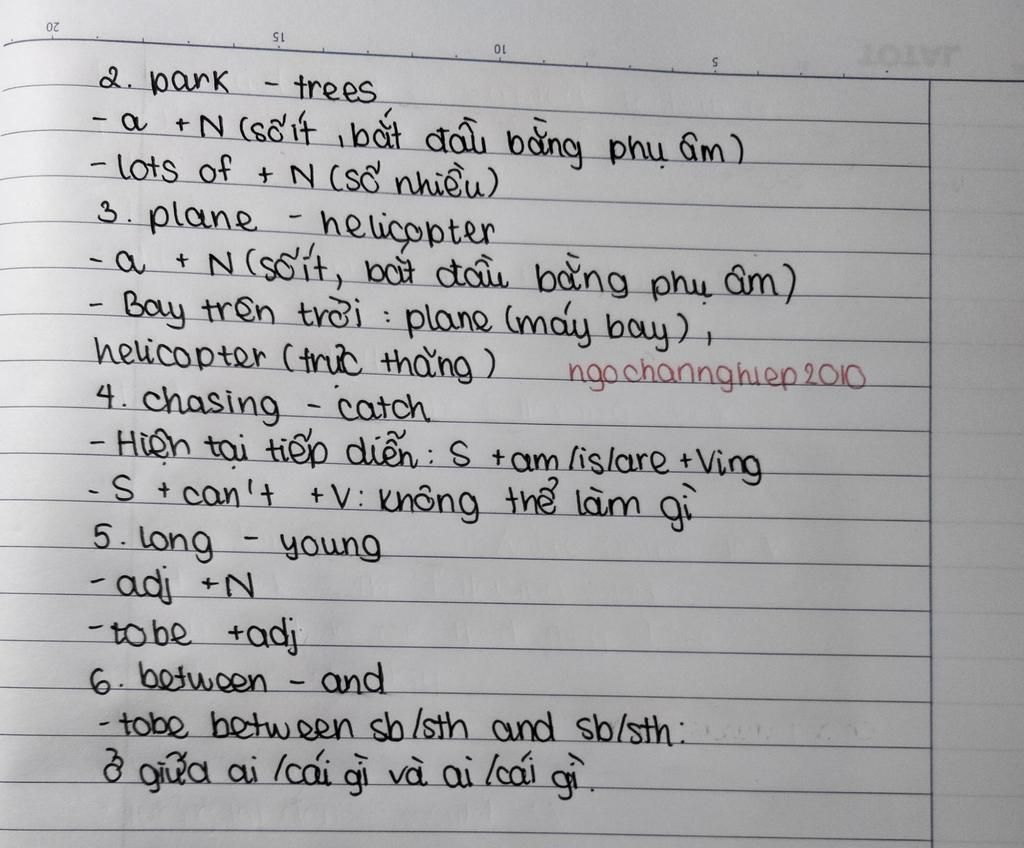 20 15 10 5
JATOT
2. park - trees
- a + N (số ít, bắt đầu bằng phụ âm)
- lots of + N (số nhiều)
3. plane - helicopter
- a + N (số ít, bắt đầu bằng phụ âm)
- Bay trên trời : plane (máy bay),
helicopter (trực thăng) ngochannghiep2010
4. chasing - catch
- Hiện tại tiếp diễn: S + am/is/are + Ving
- S + can't + V: không thể làm gì
5. long - young
- adj + N
- tobe + adj
6. between - and
- tobe between sb/sth and sb/sth:
ở giữa ai /cái gì và ai /cái gì.